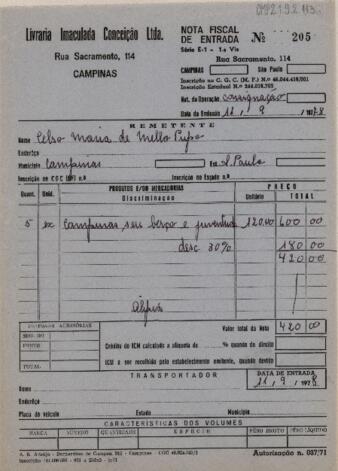 092192 113
Livraria Imaculada Conceição Ltda.
Rua Sacramento, 114
CAMPINAS
NOTA FISCAL
DE ENTRADA
Nº 205
Série E-1 - 1.a Via
Rua Sacramento, 114
CAMPINAS São Paulo
Nat. da Operação consignação
Data da Emissão 11 / 9 / 1978
REMETENTE
Nome Celso Maria de Mello Pupo
Endereço
Município Campinas Est. S. Paulo
Inscrição no CGC (MF) n.o Inscrição no Estado n.o
Quant. Unid. PRODUTOS E/OU MERCADORIAS PREÇO
Discriminação Unitário TOTAL
5 ex Campinas, seu berço e juventude 120.00 600 00
desc 30% 180 00
420 00
DESPESAS ACESSÓRIAS
Valor total da Nota 420 00
SEGURO
FRETE
Crédito do ICM calculado a alíquota de % quando de direito
TOTAL
ICM a ser recolhido pelo estabelecimento emitente, quando devido
TRANSPORTADOR
DATA DE ENTRADA
11 / 9 / 1978
Nome
Endereço
Placa do veículo Estado Município
CARACTERÍSTICAS DOS VOLUMES
MARCA NÚMERO QUANTIDADE ESPÉCIE PÊSO BRUTO PÊSO LÍQUIDO
Autorização n. 037/71